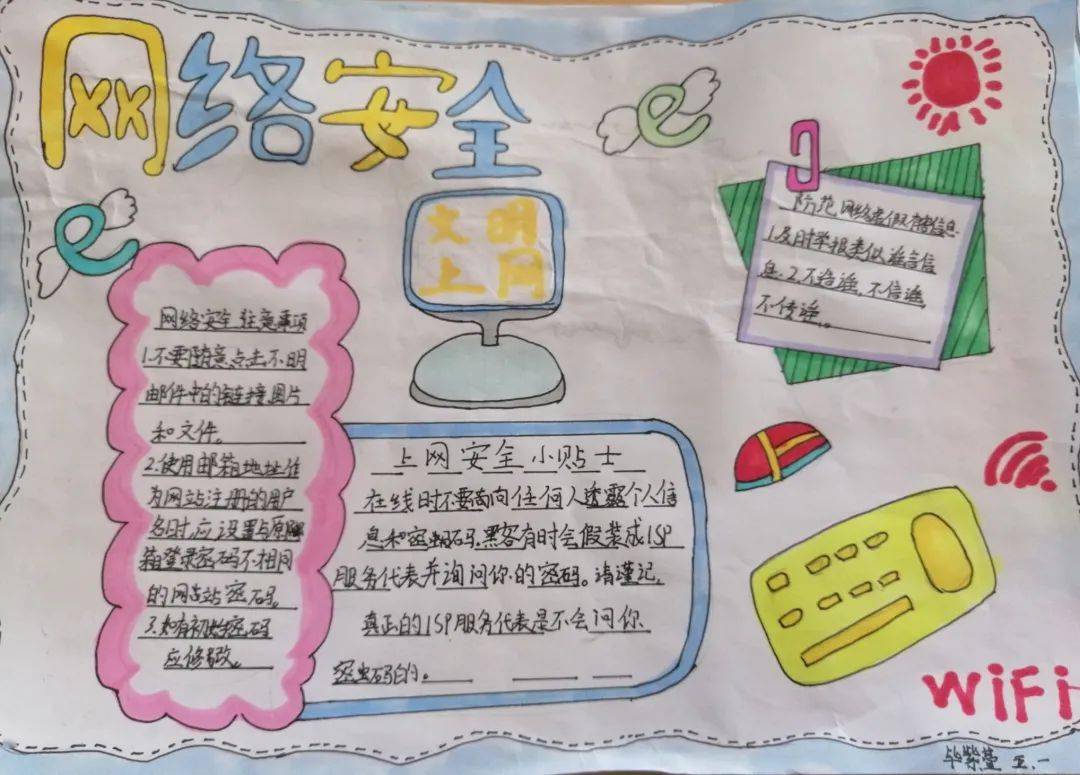 网络安全
文明
上网
防范网络虚假有害信息
1.及时举报类似谣言信
息.2.不造谣.不信谣
不传谣。
网络安全注意事项
1.不要随意点击不明
邮件中的链接图片
和文件。
2.使用邮箱地址作
为网站注册的用户
名时,应设置与原邮
箱登录密码不相同
的网站密码。
3.如有初始密码
应修改。
上网安全小贴士
在线时不要向任何人透露个人信
息和密码.黑客有时会假装成ISP
服务代表并询问你的密码。请谨记,
真正的ISP服务代表是不会问你
密码的。
WiFi
五.一